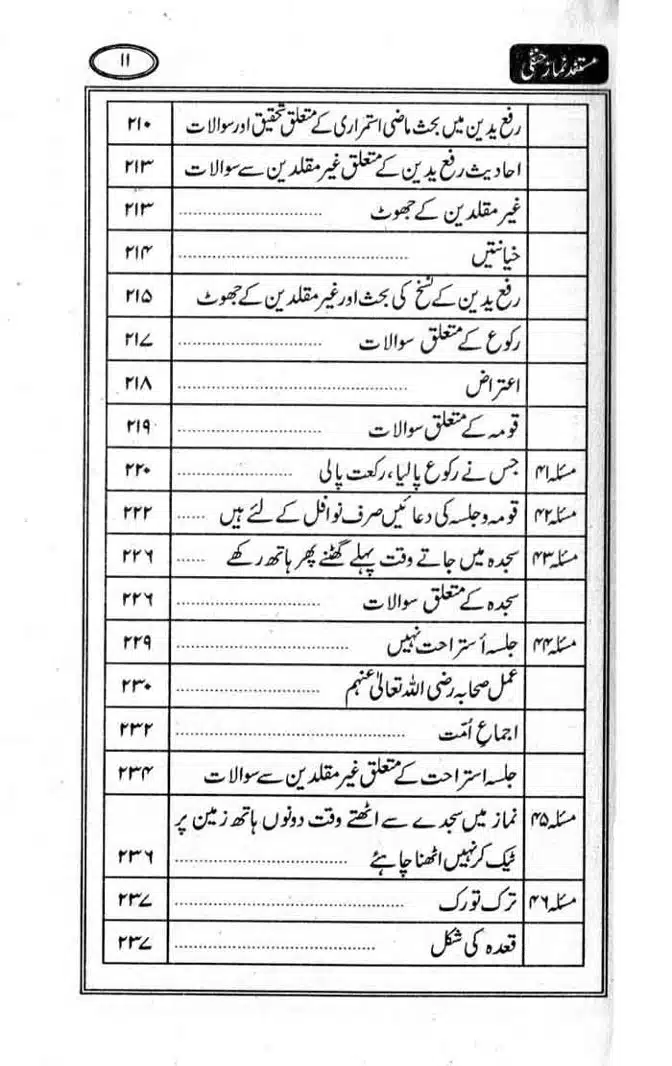 مستند نماز حنفی ۱۱
رفع یدین میں بحث ماضی استمراری کے متعلق تحقیق اور سوالات ۲۱۰
احادیث رفع یدین کے متعلق غیر مقلدین سے سوالات ۲۱۳
غیر مقلدین کے جھوٹ ........................ ۲۱۳
خیانتیں ........................ ۲۱۴
رفع یدین کے نسخ کی بحث اور غیر مقلدین کے جھوٹ ۲۱۵
رکوع کے متعلق سوالات ........................ ۲۱۷
اعتراض ........................ ۲۱۸
قومہ کے متعلق سوالات ........................ ۲۱۹
مسئلہ ۴۱ جس نے رکوع پا لیا، رکعت پا لی ........................ ۲۲۰
مسئلہ ۴۲ قومہ و جلسہ کی دعائیں صرف نوافل کے لئے ہیں ...... ۲۲۲
مسئلہ ۴۳ سجدہ میں جاتے وقت پہلے گھٹنے پھر ہاتھ رکھے ...... ۲۲۶
سجدہ کے متعلق سوالات ........................ ۲۲۶
مسئلہ ۴۴ جلسہ أستراحت نہیں ........................ ۲۲۹
عمل صحابہ رضی اللہ تعالیٰ عنہم ........................ ۲۳۰
اجماعِ اُمّت ........................ ۲۳۲
جلسہ استراحت کے متعلق غیر مقلدین سے سوالات ۲۳۴
مسئلہ ۴۵ نماز میں سجدے سے اٹھتے وقت دونوں ہاتھ زمین پر
ٹیک کر نہیں اٹھنا چاہئے ........................ ۲۳۶
مسئلہ ۴۶ ترک تورک ........................ ۲۳۷
قعدہ کی شکل ........................ ۲۳۷